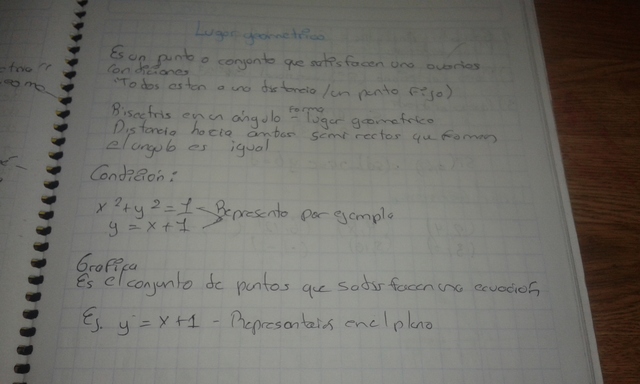 Lugar geometrico
Es un punto o conjunto que satisfacen una o varias
condiciones
(Todos estan a una distancia / un punto fijo)
Bisectris en un ángulo - forma lugar geometrico
Distancia hacia ambas semi rectas que forman
el angulo es igual
Condición:
x²+y²=1
y = x+1 > Represento por ejemplo
Grafica
Es el conjunto de puntos que satisfacen una ecuación
Ej. y = x+1 - en el plano